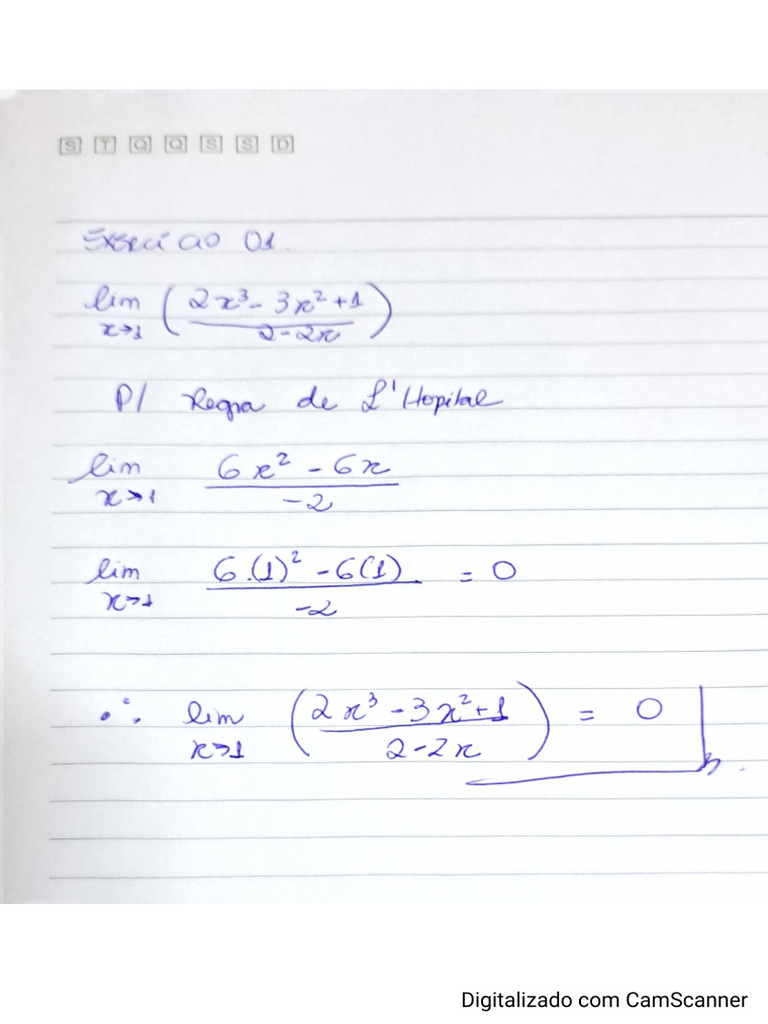 S T Q Q S S D
Exercício 01.
lim x→1 ( 2x³ - 3x² + 1 / 2 - 2x )
P/ Regra de L'Hopital
lim x→1 6x² - 6x / -2
lim x→1 6.(1)² - 6(1) / -2 = 0
∴ lim x→1 ( 2x³ - 3x² + 1 / 2 - 2x ) = 0
Digitalizado com CamScanner